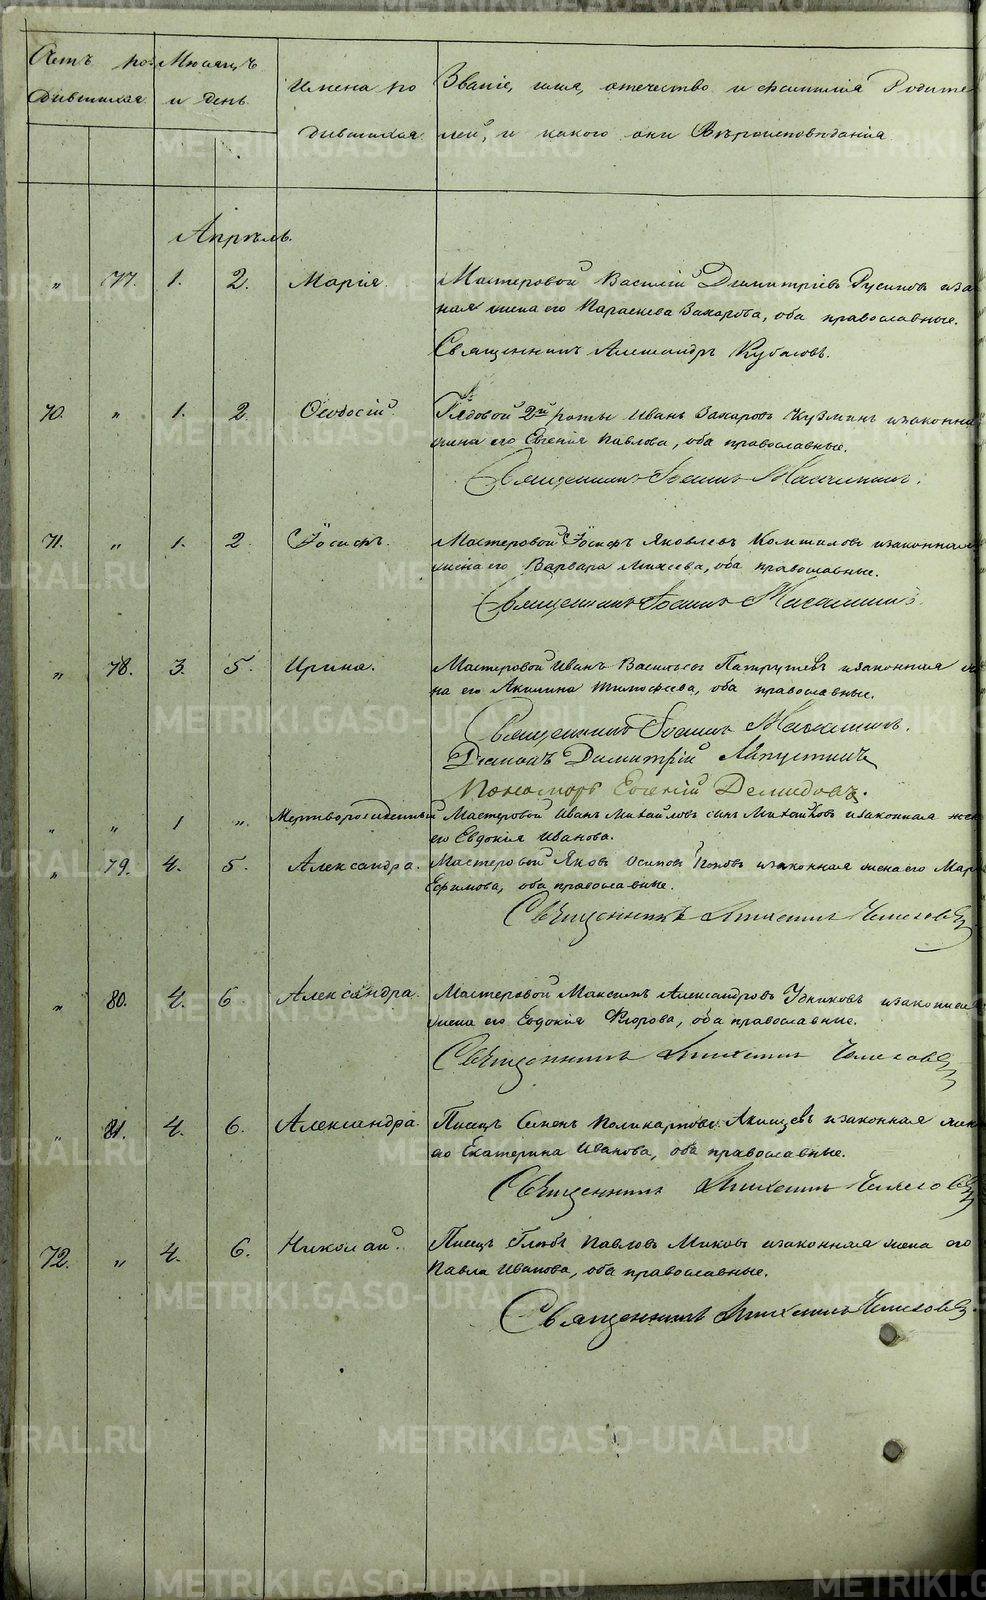 Счетъ ро- Мѣсяцъ Имена ро Званіе, имя, отечество и фамилія Родите
дившихся и день дившихся лей, и какого они Вѣроисповѣданія
Апрѣль.
" 77. 1. 2. Марія. Мастеровой Василій Димитріевъ Русиновъ и за
ная жена его Параскева Захарова, оба православные.
Священникъ Александръ
70. " 1. 2. Ѳеодосій. Рядовой 2й роты Иванъ Захаровъ Кузминъ и законна
жена его Евгенія Павлова, оба православные.
Священникъ Іоаннъ
71. " 1. 2. Іосифъ. Мастеровой Іосифъ Яковлевъ и законная
жена его Варвара Михеева, оба православные.
Священникъ Іоаннъ
" 78. 3. 5. Ирина. Мастеровой Иванъ Васильевъ Патрушевъ и законная же
на его Акилина Тимофеева, оба православные.
Священникъ Іоаннъ
Діаконъ Димитрій
Пономарь Евгеній Демидовъ.
" " 1 " Мертворожденный Мастеровой Иванъ Михайловъ сынъ и законная жен
его Евдокія Иванова.
" 79. 4. 5. Александра. Мастеровой Яковъ Осиповъ Поповъ и законная жена его Мар
Ефимова, оба православные.
Священникъ
" 80. 4. 6. Александра. Мастеровой Максимъ Александровъ и законная
жена его Евдокія оба православные.
Священникъ
" 81. 4. 6. Александра. Писецъ Семенъ Поликарповъ и законная жен
его Екатерина Иванова, оба православные.
Священникъ
72. " 4. 6. Николай. Писецъ Глебъ Павловъ и законная жена его
Павла Иванова, оба православные.
Священникъ
METRIKI.GASO-URAL.RU